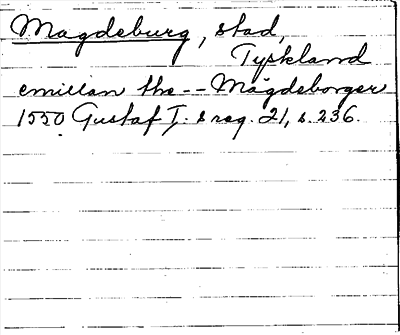 Magdeburg, stad,
Tyskland
emillan the -- Mågdeborger
1550 Gustaf I:s reg. 21, s. 236.